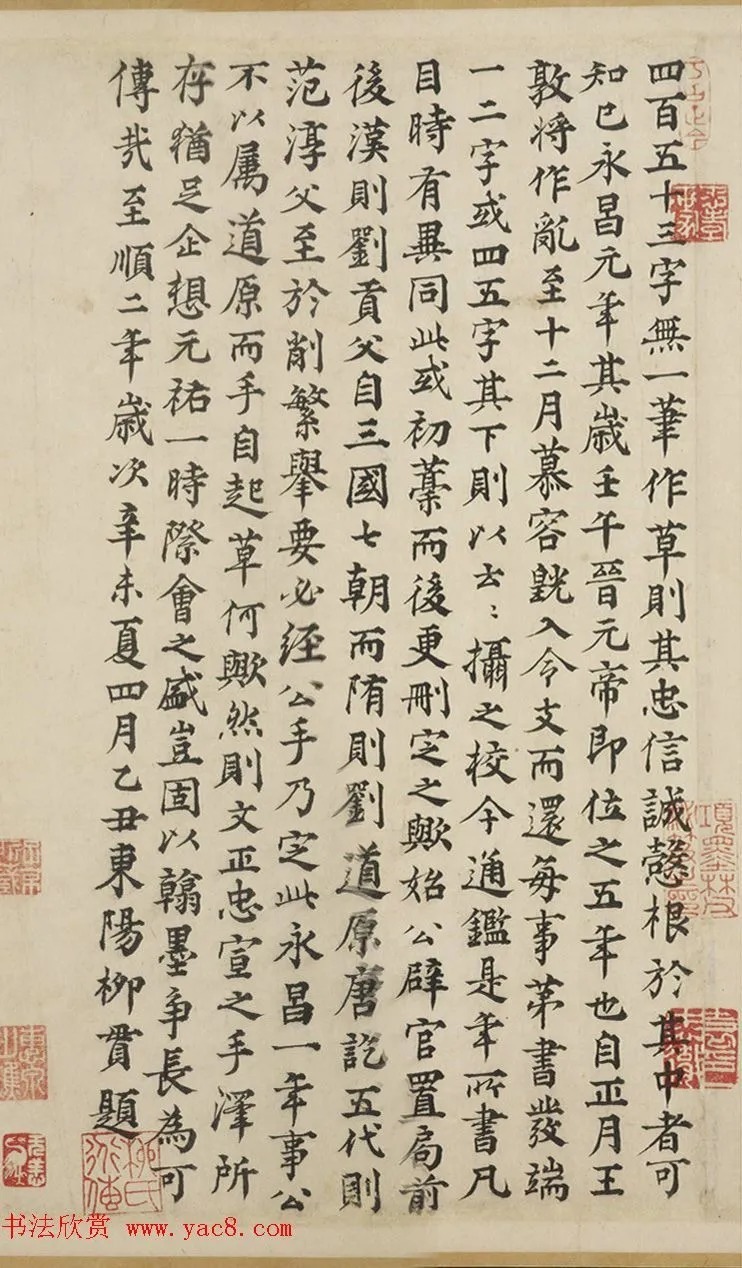 四百五十三字無一筆作草則其忠信誠慤根於其中者可
知已永昌元年其歲壬午晉元帝即位之五年也自正月王
敦將作亂至十二月慕容皝入令支而還每事第書發端
一二字或四五字其下則以云〻攝之校今通鑑是年所書凡
目時有異同此或初藁而後更刪定之歟始公辟官置局前
後漢則劉貢父自三國七朝而隋則劉道原唐訖五代則
范淳父至於削繁舉要必經公手乃定此永昌一年事公
不以屬道原而手自起草何歟然則文正忠宣之手澤所
存猶足企想元祐一時際會之盛豈固以翰墨爭長為可
傳哉至順二年歲次辛未夏四月乙丑東陽柳貫題
柳氏
書法欣賞 www.yac8.com